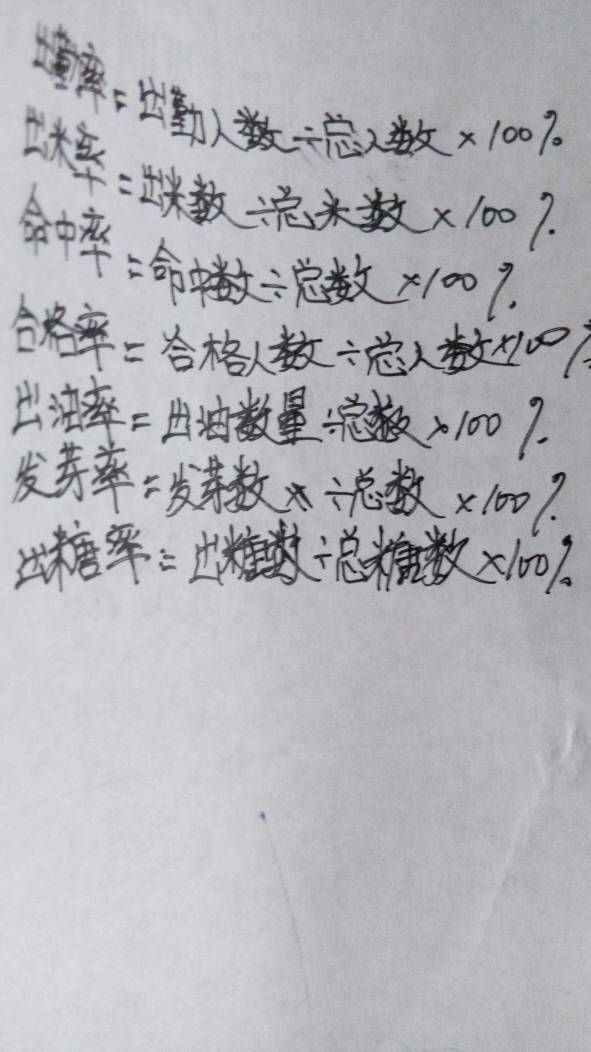 出勤率=出勤人数÷总人数×100%
出米率=出米数÷总米数×100%
命中率=命中数÷总数×100%
合格率=合格人数÷总人数×100%
出油率=出油数量÷总数×100%
发芽率=发芽数×÷总数×100%
出糖率=出糖数÷总糖数×100%